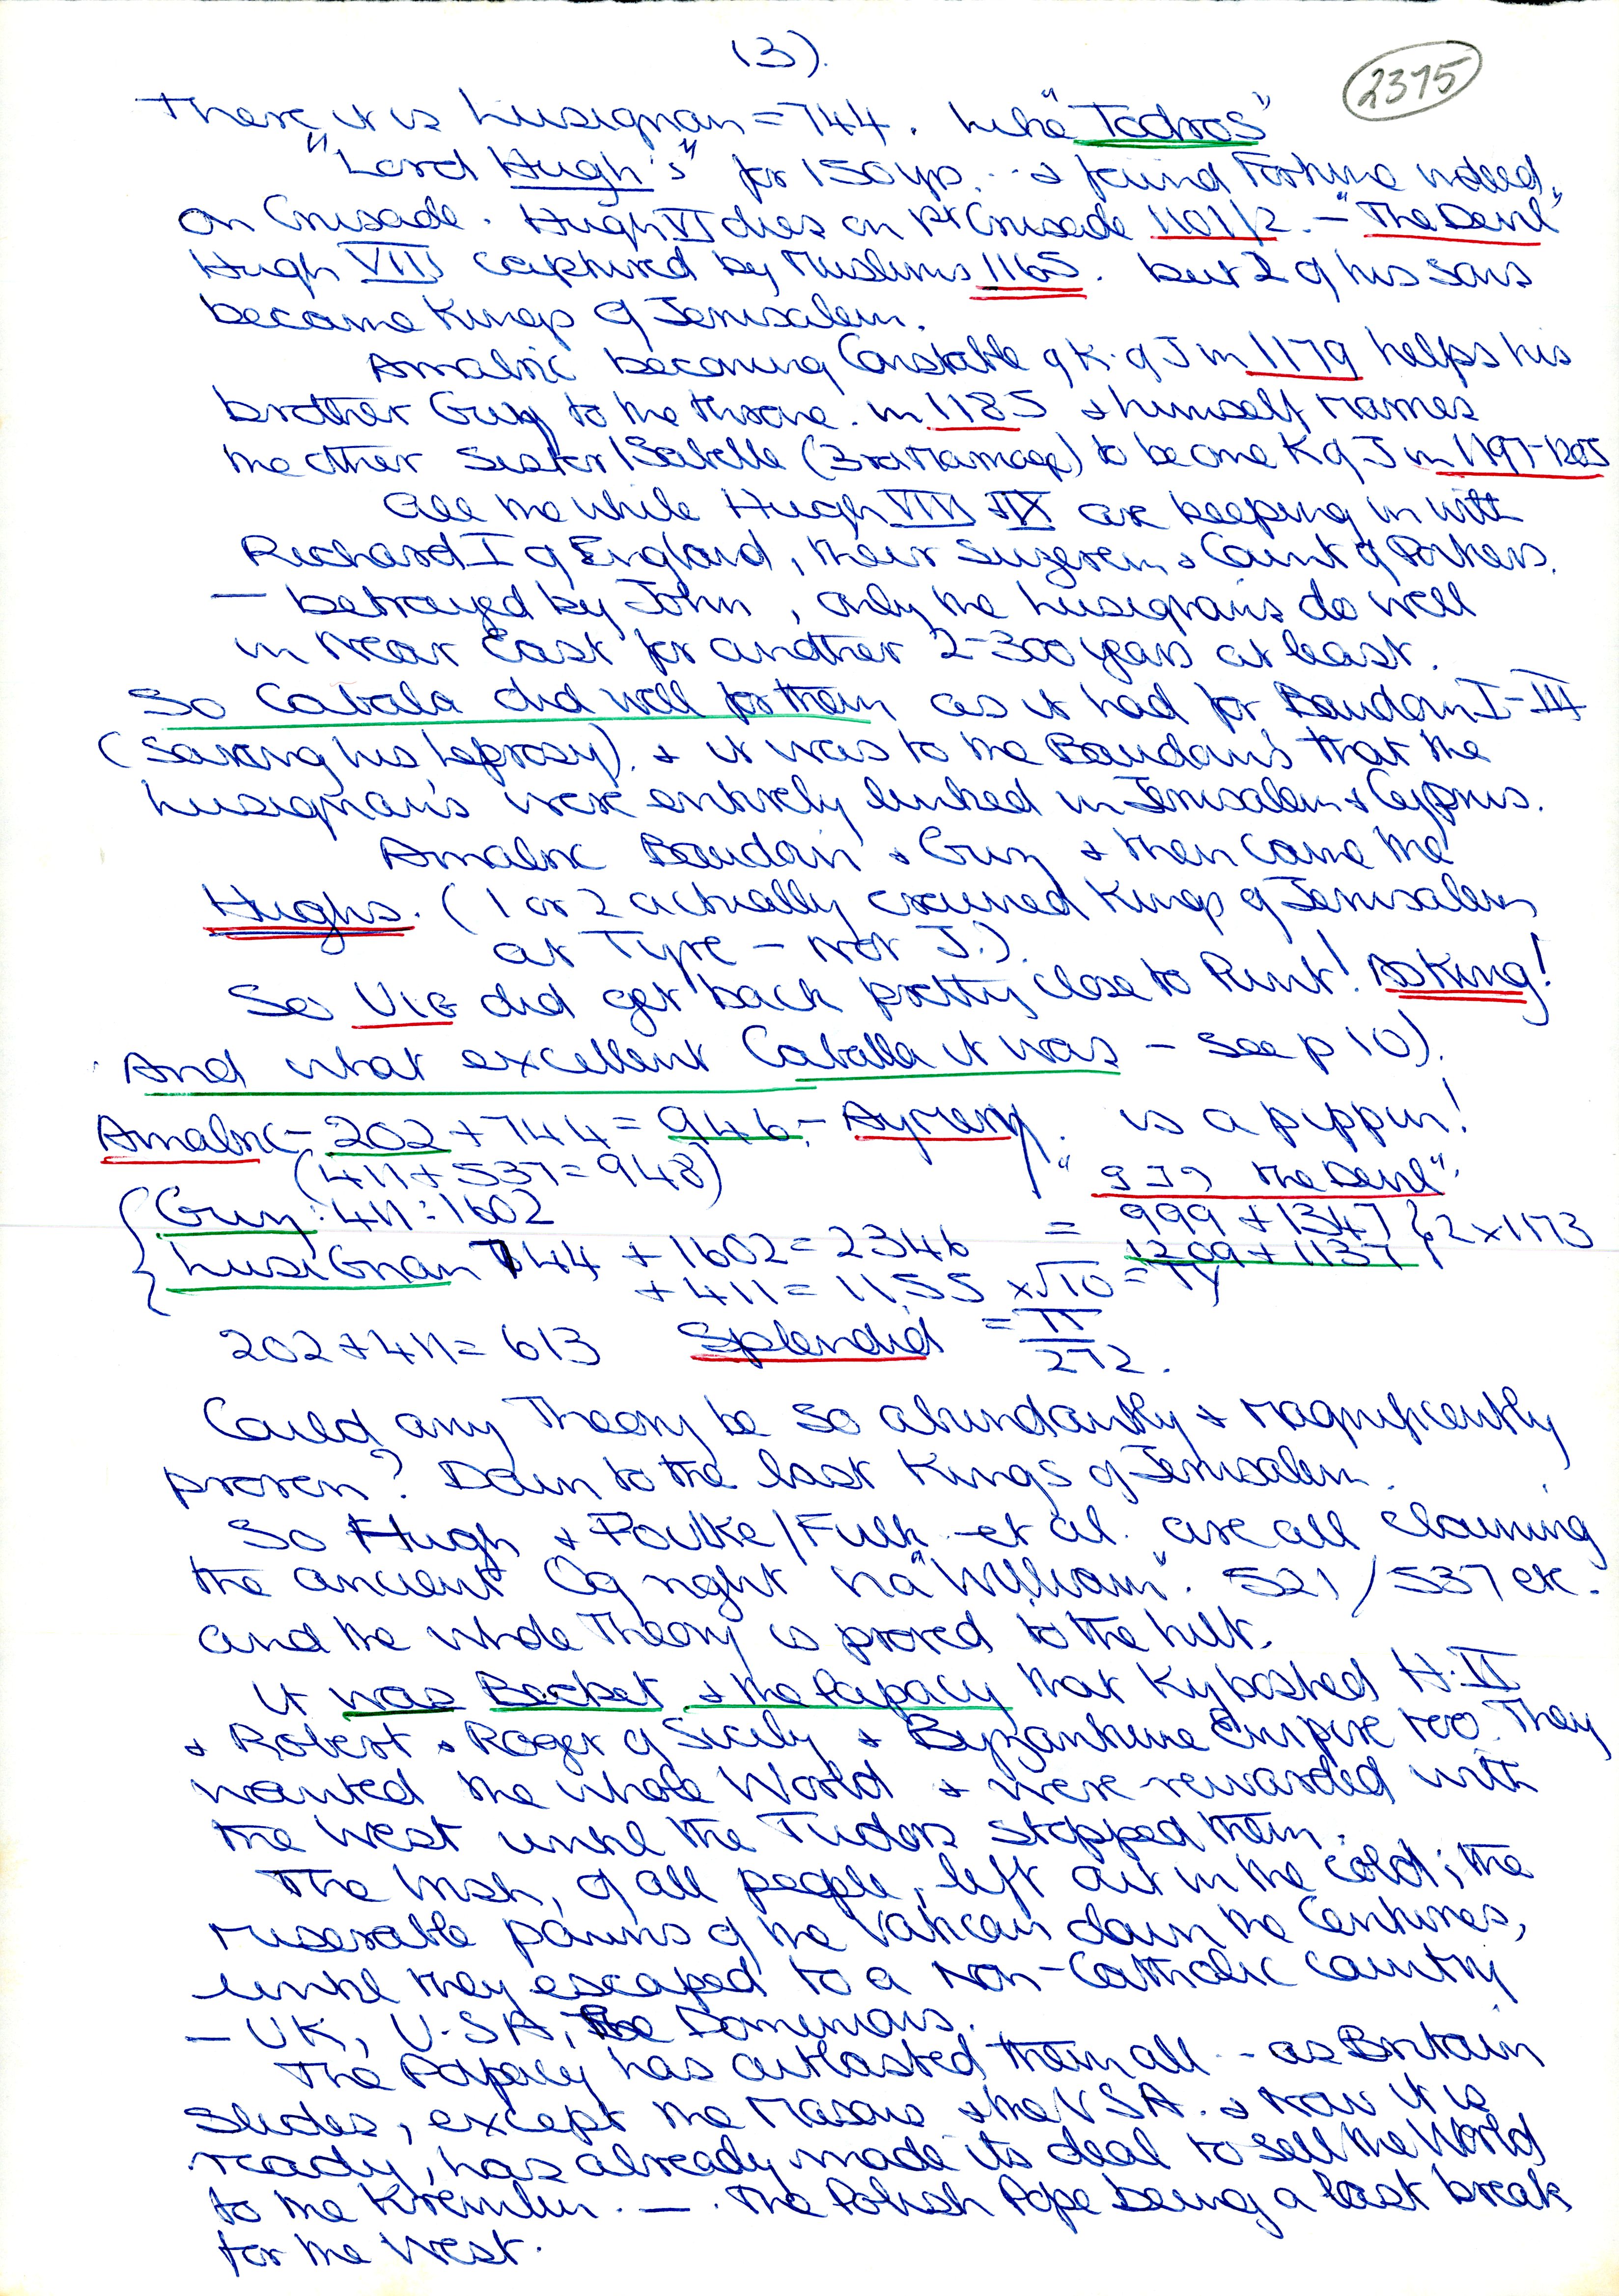 (3).
2375
There it is Lusignan = 744. like "Todros"
"Lord Hugh's" for 150 yrs. -- & found Fortune indeed,
on Crusade. Hugh VI dies on 1st Crusade 1101/2. - "The Devil"
Hugh VIII captured by Muslims 1165. but 2 of his sons
became Kings of Jerusalem.
Amalric becoming Constable of K. of J in 1179 helps his
brother Guy to the throne. in 1185 & himself marries
the other sister Isabelle (3rd Marriage) to become K of J in 1197-1205
All the while Hugh VIII & IX are keeping in with
Richard I of England, their Suzerein & Count of Poitiers.
- betrayed by John, only the Lusignans do well
in Near East for another 2-300 years at least.
So Cabala did well for them as it had for Baudoin I-III
(saving his leprosy). & it was to the Baudoins that the
Lusignan's were entirely linked in Jerusalem & Cyprus.
Amalric Baudoin & Guy & then came the
Hughs. (1 or 2 actually crowned Kings of Jerusalem
at Tyre - not J.).
So did get back pretty close to Punt! As King!
And what excellent Caballa it was - see p 10).
Amalric - 202 + 744 = 946. - Aymery. is a pippin!
(411 + 537 = 948) " 939 the Devil".
Guy: 411: 1602 = 999 + 1347 } 2 x 1173
LusiGnan 744 + 1602 = 2346 1209 + 1137
+ 411 = 11.55 x √10 =
202 + 411 = 613 Splendid = π/272.
Could any Theory be so abundantly & magnificently
proven? Down to the last Kings of Jerusalem.
So Hugh & Foulke/Fulk - et al. are all claiming
the ancient Og right via "William". 521/537 etc.
and the whole Theory is proved to the hilt.
It was Becket & the Papacy that Kyboshed H.II
& Robert & Roger of Sicily & Byzantine Empire too. They
wanted the whole World & were rewarded with
the West until the Tudors stopped them.
The Irish, of all people, left out in the cold; the
miserable pawns of the Vatican down the Centuries,
until they escaped to a Non-Catholic country
- UK, U.S.A, The Dominions.
The Papacy has outlasted them all -- as Britain
slides, except the Masons & the USA. & Now it is
ready, has already made its deal to sell the World
to the Kremlin. -. The Polish Pope being a last break
for the West.